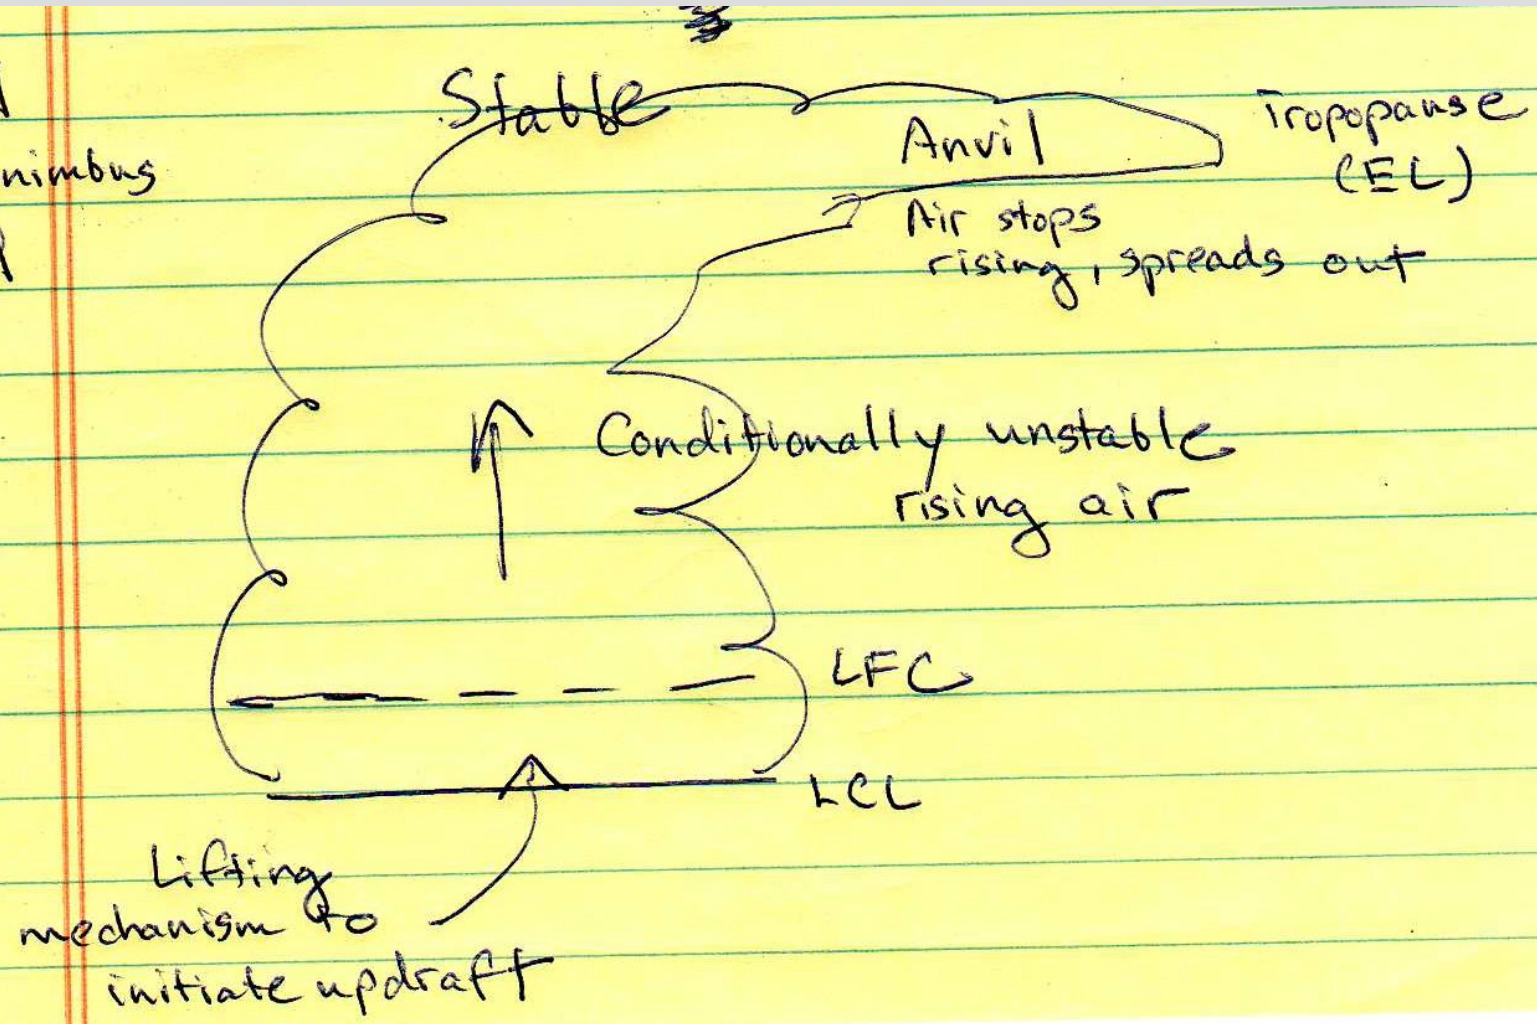 Stable
Tropopause
(EL)
Anvil
nimbus
Air stops
rising, spreads out
Conditionally unstable
rising air
LFC
LCL
Lifting
mechanism to
initiate updraft